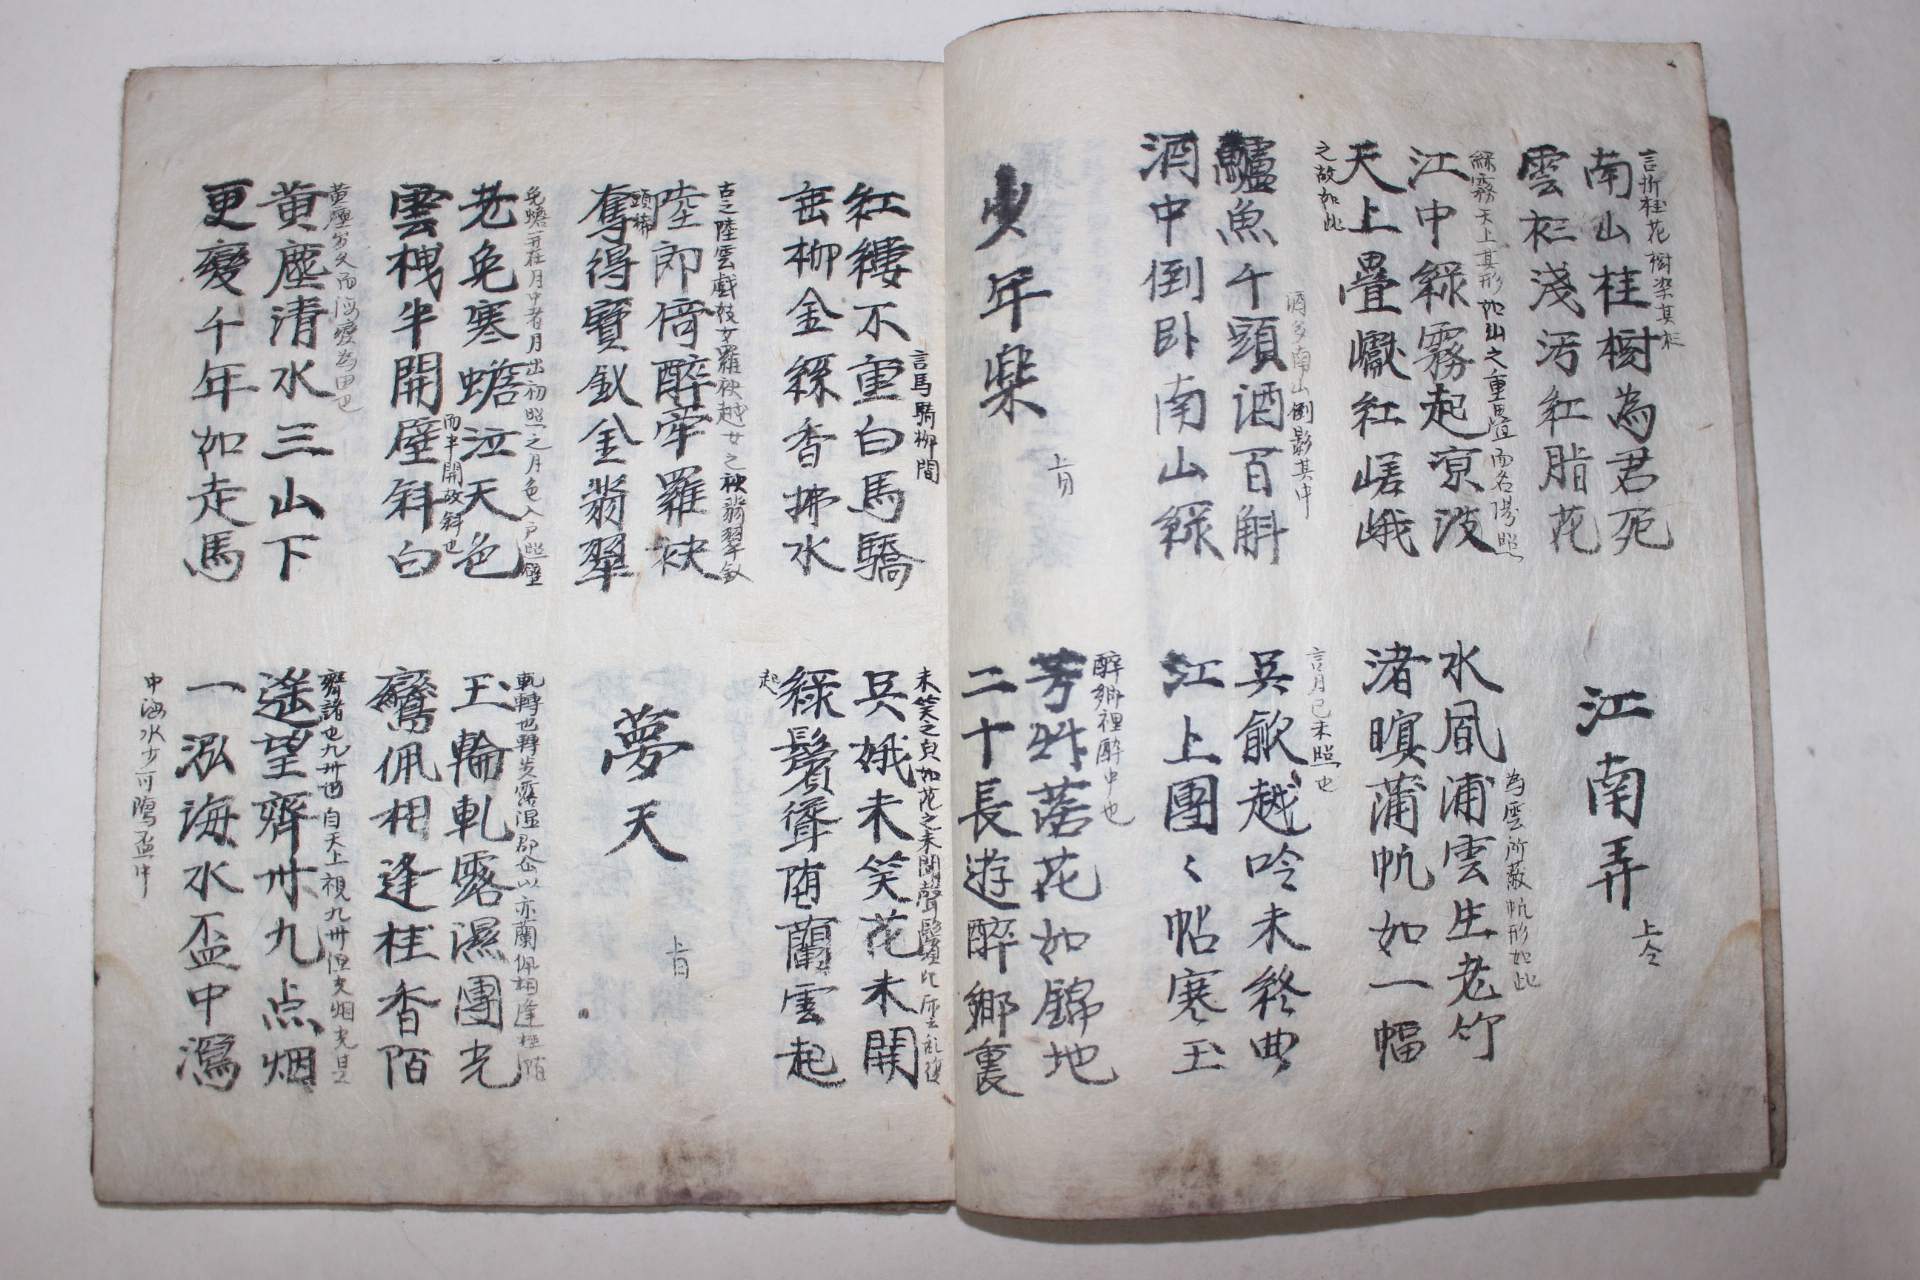 言折桂花樹染其衫
南山桂樹為君死
雲衫淺污紅脂花
江南弄
上仝
綠霧天上其形如山之重疊而名陽照
江中綠霧起凉波
天上疊巘紅嵯峨
之故如此
為雲所蔽帆形如此
水風浦雲生老竹
渚暝蒲帆如一幅
酒多南山倒影其中
鱸魚千頭酒百斛
酒中倒卧南山綠
言月已未照也
吳歈越吟未終曲
江上團〻帖寒玉
少年樂
上同
醉鄕裡醉中也
芳艸落花如錦地
二十長遊醉鄉裏
言馬驕柳間
紅纓不重白馬驕
垂柳金絲香拂水
未笑之皃如花之未開聳鬢
吳娥未笑花未開
綠鬢聳墮蘭雲起
起
古之陸雲戲妓女羅袂越女之袂翡翠釵
陸郎倚醉牽羅袂
奪得寶釵金翡翠
頭梳
夢天
上同
兔蟾二在月中者月出初照之月色入戶照壁
老兔寒蟾泣天色
雲樓半開壁斜白
而半開故斜也
軋轉也轉炎露湿
亦蘭佩相逢桂陌
玉輪軋露濕團光
鸞佩相逢桂香陌
黃塵岁久而海變為田也
黃塵清水三山下
更變千年如走馬
齊諸也九卅也自天上視九卅
遙望齊卅九点烟
一泓海水盃中瀉
中海水少可瀉盃中